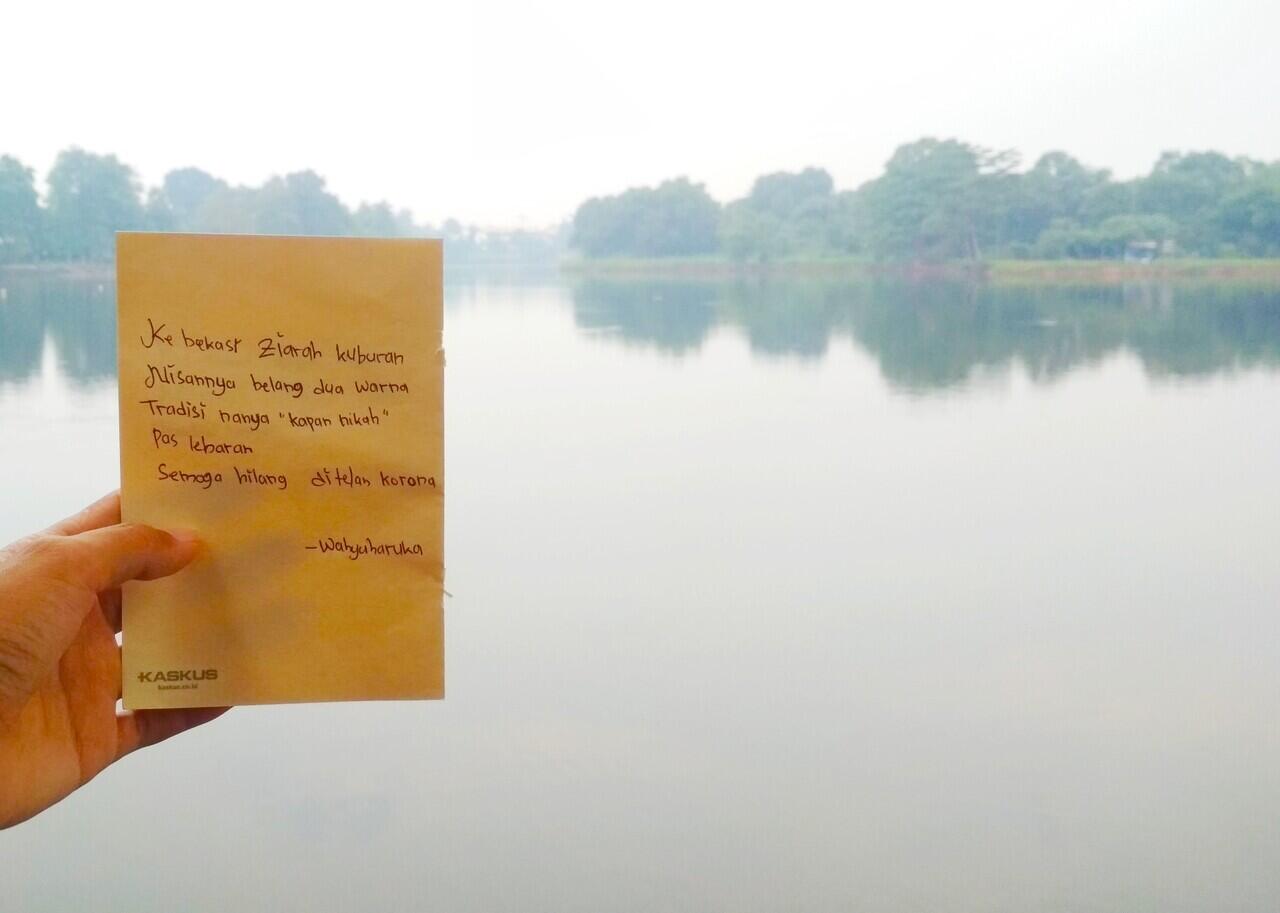 Ke bekasi Ziarah kuburan
Nisannya belang dua warna
Tradisi nanya "kapan nikah"
Pas lebaran
Semoga hilang ditelan korona
-Wahyuharuka
KASKUS
kaskus.co.id